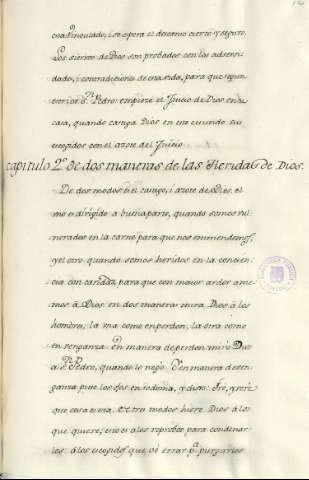 i se espera el descanso cierto y seguro.
Los siervos de Dios son probados con las adversi-
dades, i contradiciones de esta vida, para que segun
S.n Pedro: empieze el Juicio de Dios en su
casa, quando castiga Dios en este mundo sus
escogidos con el azote del Juicio
capitulo 2º de dos maneras de las Heridas de Dios.
De dos modos es el castigo, i azote de Dios, el
uno es dirigido a buena parte, quando somos vul-
nerados en la carne para que nos emmendemos,
y el otro quando somos heridos en la concien-
cia con caridad, para que con maior ardor ame-
mos â Dios en dos maneras mira Dios â los
hombres; la una como en perdon; la otra como
en venganza. En manera de perdon, miró Dios
a S.n Pedro, quando lo negó. En manera de ven-
ganza puse los ojos en sodoma, y dixo: Iré, y veré
que cosa es esa. En tres modos hiere Dios â los
que quiere; esto es a los reprobos para condenar-
los. â los escogidos que vé errar p.a purgarlos